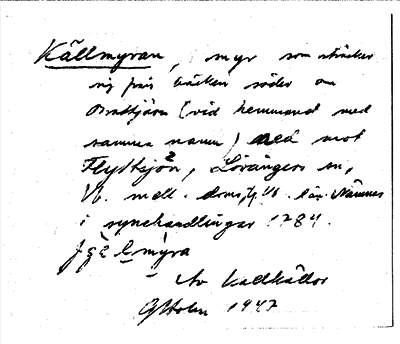 Källmyran, myr som sträcker
sig från bäcken söder om
Bratt­järn (vid hemmanet med
samma namn) ned mot
Flyttsjön, Lövångers sn,
Vb. mell. doms., Vb. län. Nämnes
i synehandlingar 1784.
myra
Av kallkällor
G Holm 1947